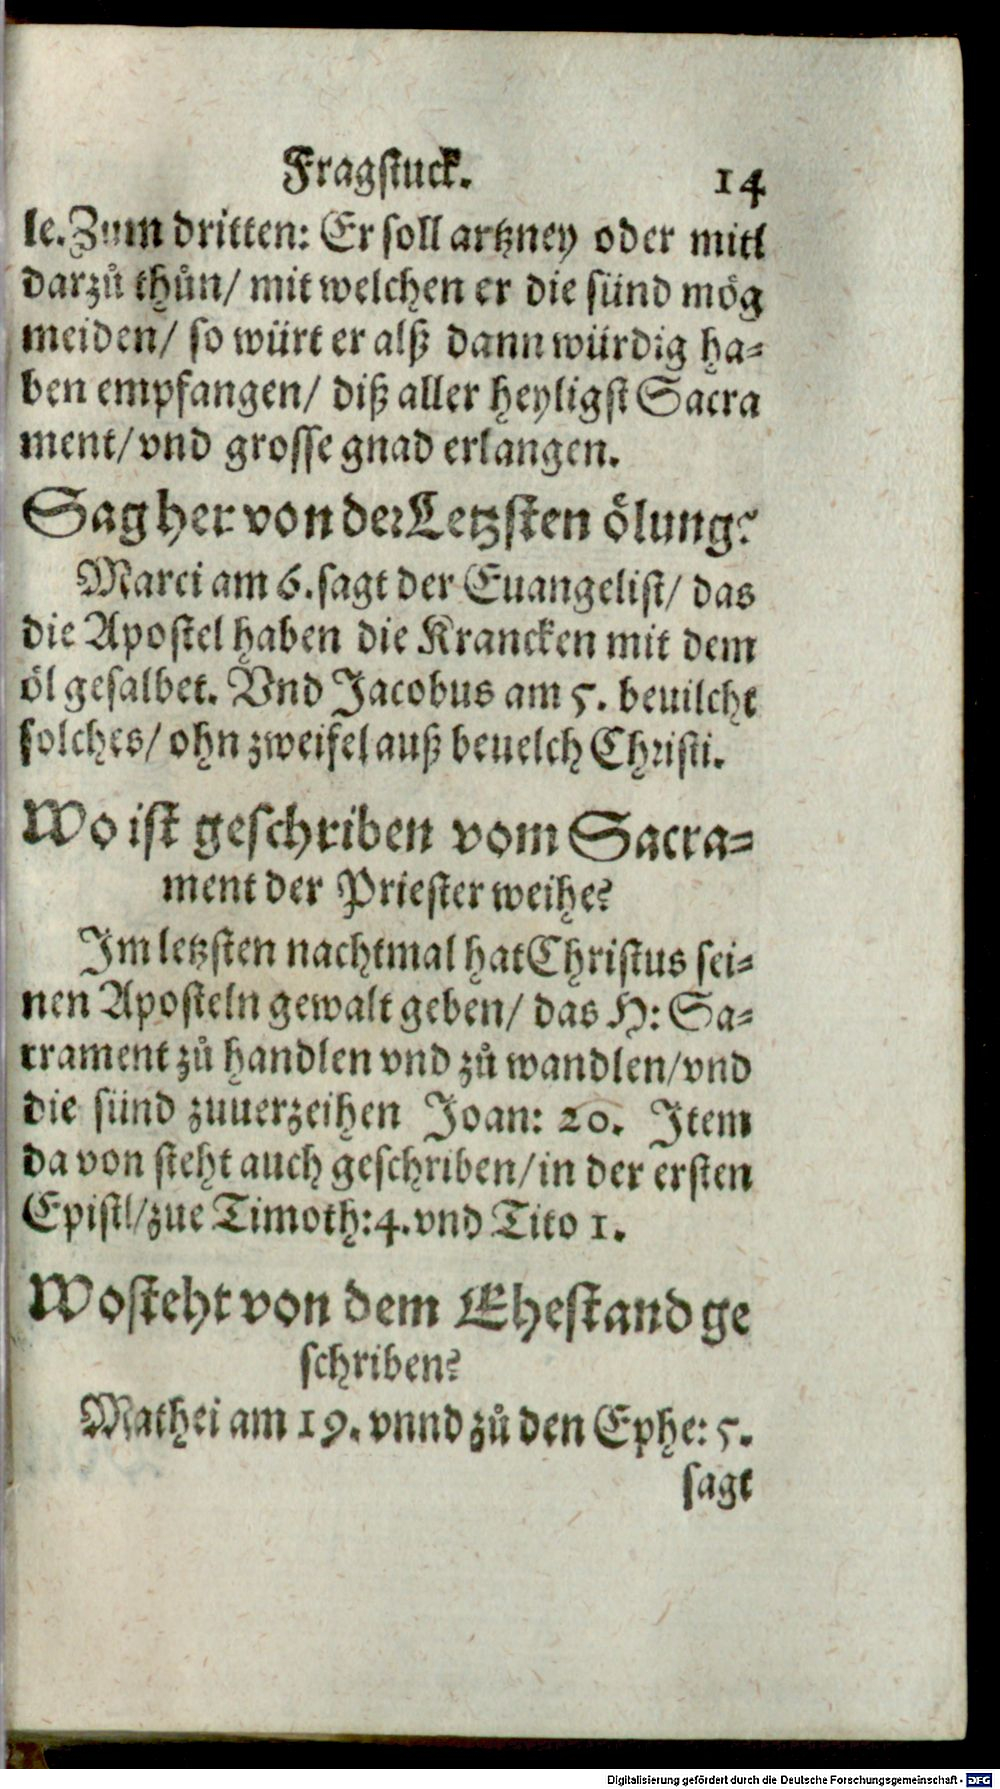 Fragstuck. 14
le. Zum dritten: Er soll artzney oder mitl
darzů thůn/ mit welchen er die sünd mög
meiden/ so würt er alß dann würdig ha-
ben empfangen/ diß aller heyligst Sacra
ment/ vnd grosse gnad erlangen.
Sag her von der Letzsten ölung?
Marci am 6. sagt der Euangelist/ das
die Apostel haben die Krancken mit dem
öl gesalbet. Vnd Jacobus am 5. beuilcht
solches/ ohn zweifel auß beuelch Christi.
Wo ist geschriben vom Sacra-
ment der Priester weihe?
Im letzsten nachtmal hat Christus sei-
nen Aposteln gewalt geben/ das H: Sa-
crament zů handlen vnd zů wandlen/ vnd
die sünd zuuerzeihen Joan: 20. Item
da von steht auch geschriben/ in der ersten
Epistl/ zue Timoth: 4. vnd Tito 1.
Wo steht von dem Ehestand ge
schriben?
Mathei am 19. vnnd zů den Ephe: 5.
sagt
Digitalisierung gefördert durch die Deutsche Forschungsgemeinschaft - DFG